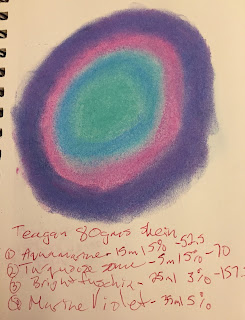 Teagan 80gms skein
① Aquamarine - 15ml 5% - 52.5
② Turquoise - 5ml 5% - 70
③ Bright fuchsia - 25ml 3% - 157.
④ Marine Violet - 35ml 5%